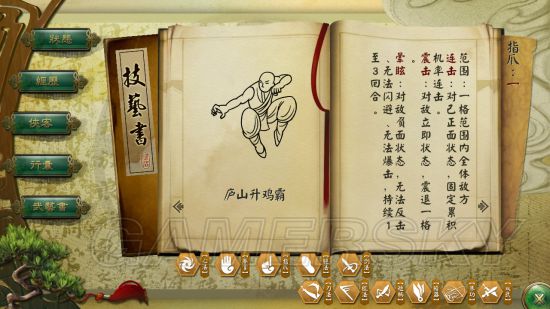 狀態
經歷
俠客
行囊
武藝書
技藝書
庐山升鸡霸
指爪：一
范围：一格范围内全体敌方
连击：对己正面状态，固定累积
机率连击。
震击：对敌立即状态，震退一格
晕眩：对敌负面状态，无法反击
、无法闪避、无法暴击，持续1
至3回合。
GAMERSKY